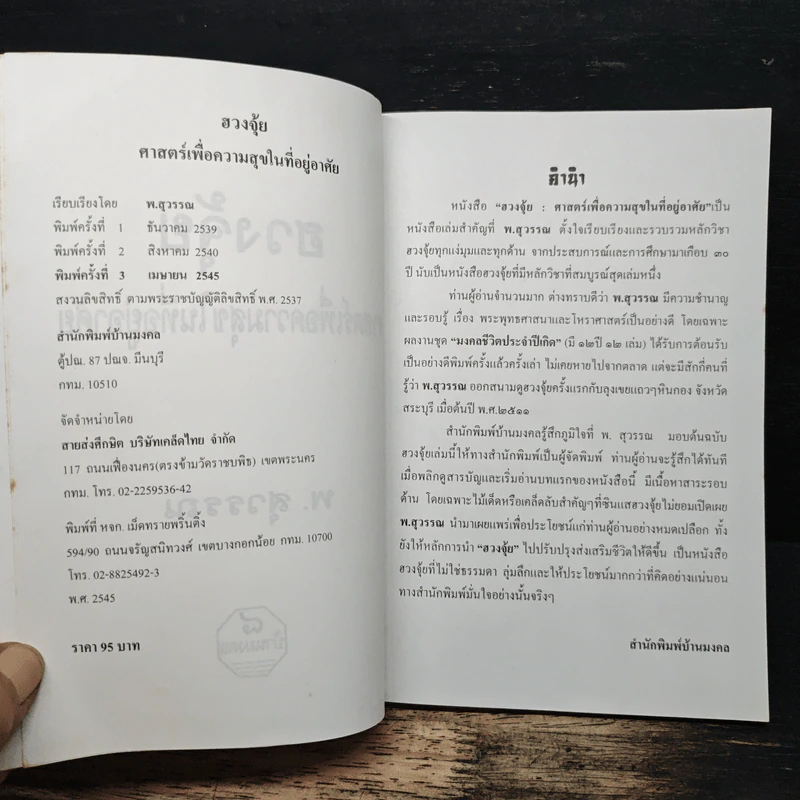 ฮวงจุ้ย
ศาสตร์เพื่อความสุขในที่อยู่อาศัย
เรียบเรียงโดย พ.สุวรรณ
พิมพ์ครั้งที่ 1 ธันวาคม 2539
พิมพ์ครั้งที่ 2 สิงหาคม 2540
พิมพ์ครั้งที่ 3 เมษายน 2545
สงวนลิขสิทธิ์ ตามพระราชบัญญัติลิขสิทธิ์ พ.ศ. 2537
สำนักพิมพ์บ้านมงคล
ตู้ปณ. 87 ปณจ. มีนบุรี
กทม. 10510
จัดจำหน่ายโดย
สายส่งศึกษิต บริษัทเคล็ดไทย จำกัด
117 ถนนเฟื่องนคร(ตรงข้ามวัดราชบพิธ) เขตพระนคร
กทม. โทร. 02-2259536-42
พิมพ์ที่ หจก. เม็ดทรายพริ้นติ้ง
594/90 ถนนจรัญสนิทวงศ์ เขตบางกอกน้อย กทม. 10700
โทร. 02-8825492-3
พ.ศ. 2545
ราคา 95 บาท
คำนำ
หนังสือ “ฮวงจุ้ย : ศาสตร์เพื่อความสุขในที่อยู่อาศัย”เป็น
หนังสือเล่มสำคัญที่ พ.สุวรรณ ตั้งใจเรียบเรียงและรวบรวมหลักวิชา
ฮวงจุ้ยทุกแง่มุมและทุกด้าน จากประสบการณ์และการศึกษามาเกือบ ๓๐
ปี นับเป็นหนังสือฮวงจุ้ยที่มีหลักวิชาที่สมบูรณ์สุดเล่มหนึ่ง
ท่านผู้อ่านจำนวนมาก ต่างทราบดีว่า พ.สุวรรณ มีความชำนาญ
และรอบรู้ เรื่อง พระพุทธศาสนาและโหราศาสตร์เป็นอย่างดี โดยเฉพาะ
ผลงานชุด “มงคลชีวิตประจำปีเกิด” (มี ๑๒ปี ๑๒ เล่ม) ได้รับการต้อนรับ
เป็นอย่างดีพิมพ์ครั้งแล้วครั้งเล่า ไม่เคยหายไปจากตลาด แต่จะมีสักกี่คนที่
รู้ว่า พ.สุวรรณ ออกสนามดูฮวงจุ้ยครั้งแรกกับลุงเขยแถวๆหินกอง จังหวัด
สระบุรี เมื่อต้นปี พ.ศ.๒๕๑๑
สำนักพิมพ์บ้านมงคลรู้สึกภูมิใจที่ พ. สุวรรณ มอบต้นฉบับ
ฮวงจุ้ยเล่มนี้ให้ทางสำนักพิมพ์เป็นผู้จัดพิมพ์ ท่านผู้อ่านจะรู้สึกได้ทันที
เมื่อพลิกดูสารบัญและเริ่มอ่านบทแรกของหนังสือนี้ มีเนื้อหาสาระรอบ
ด้าน โดยเฉพาะไม้เด็ดหรือเคล็ดลับสำคัญๆที่ซินแสฮวงจุ้ยไม่ยอมเปิดเผย
พ.สุวรรณ นำมาเผยแพร่เพื่อประโยชน์แก่ท่านผู้อ่านอย่างหมดเปลือก ทั้ง
ยังให้หลักการนำ “ฮวงจุ้ย” ไปปรับปรุงส่งเสริมชีวิตให้ดีขึ้น เป็นหนังสือ
ฮวงจุ้ยที่ไม่ใช่ธรรมดา ลุ่มลึกและให้ประโยชน์มากกว่าที่คิดอย่างแน่นอน
ทางสำนักพิมพ์มั่นใจอย่างนั้นจริงๆ
สำนักพิมพ์บ้านมงคล